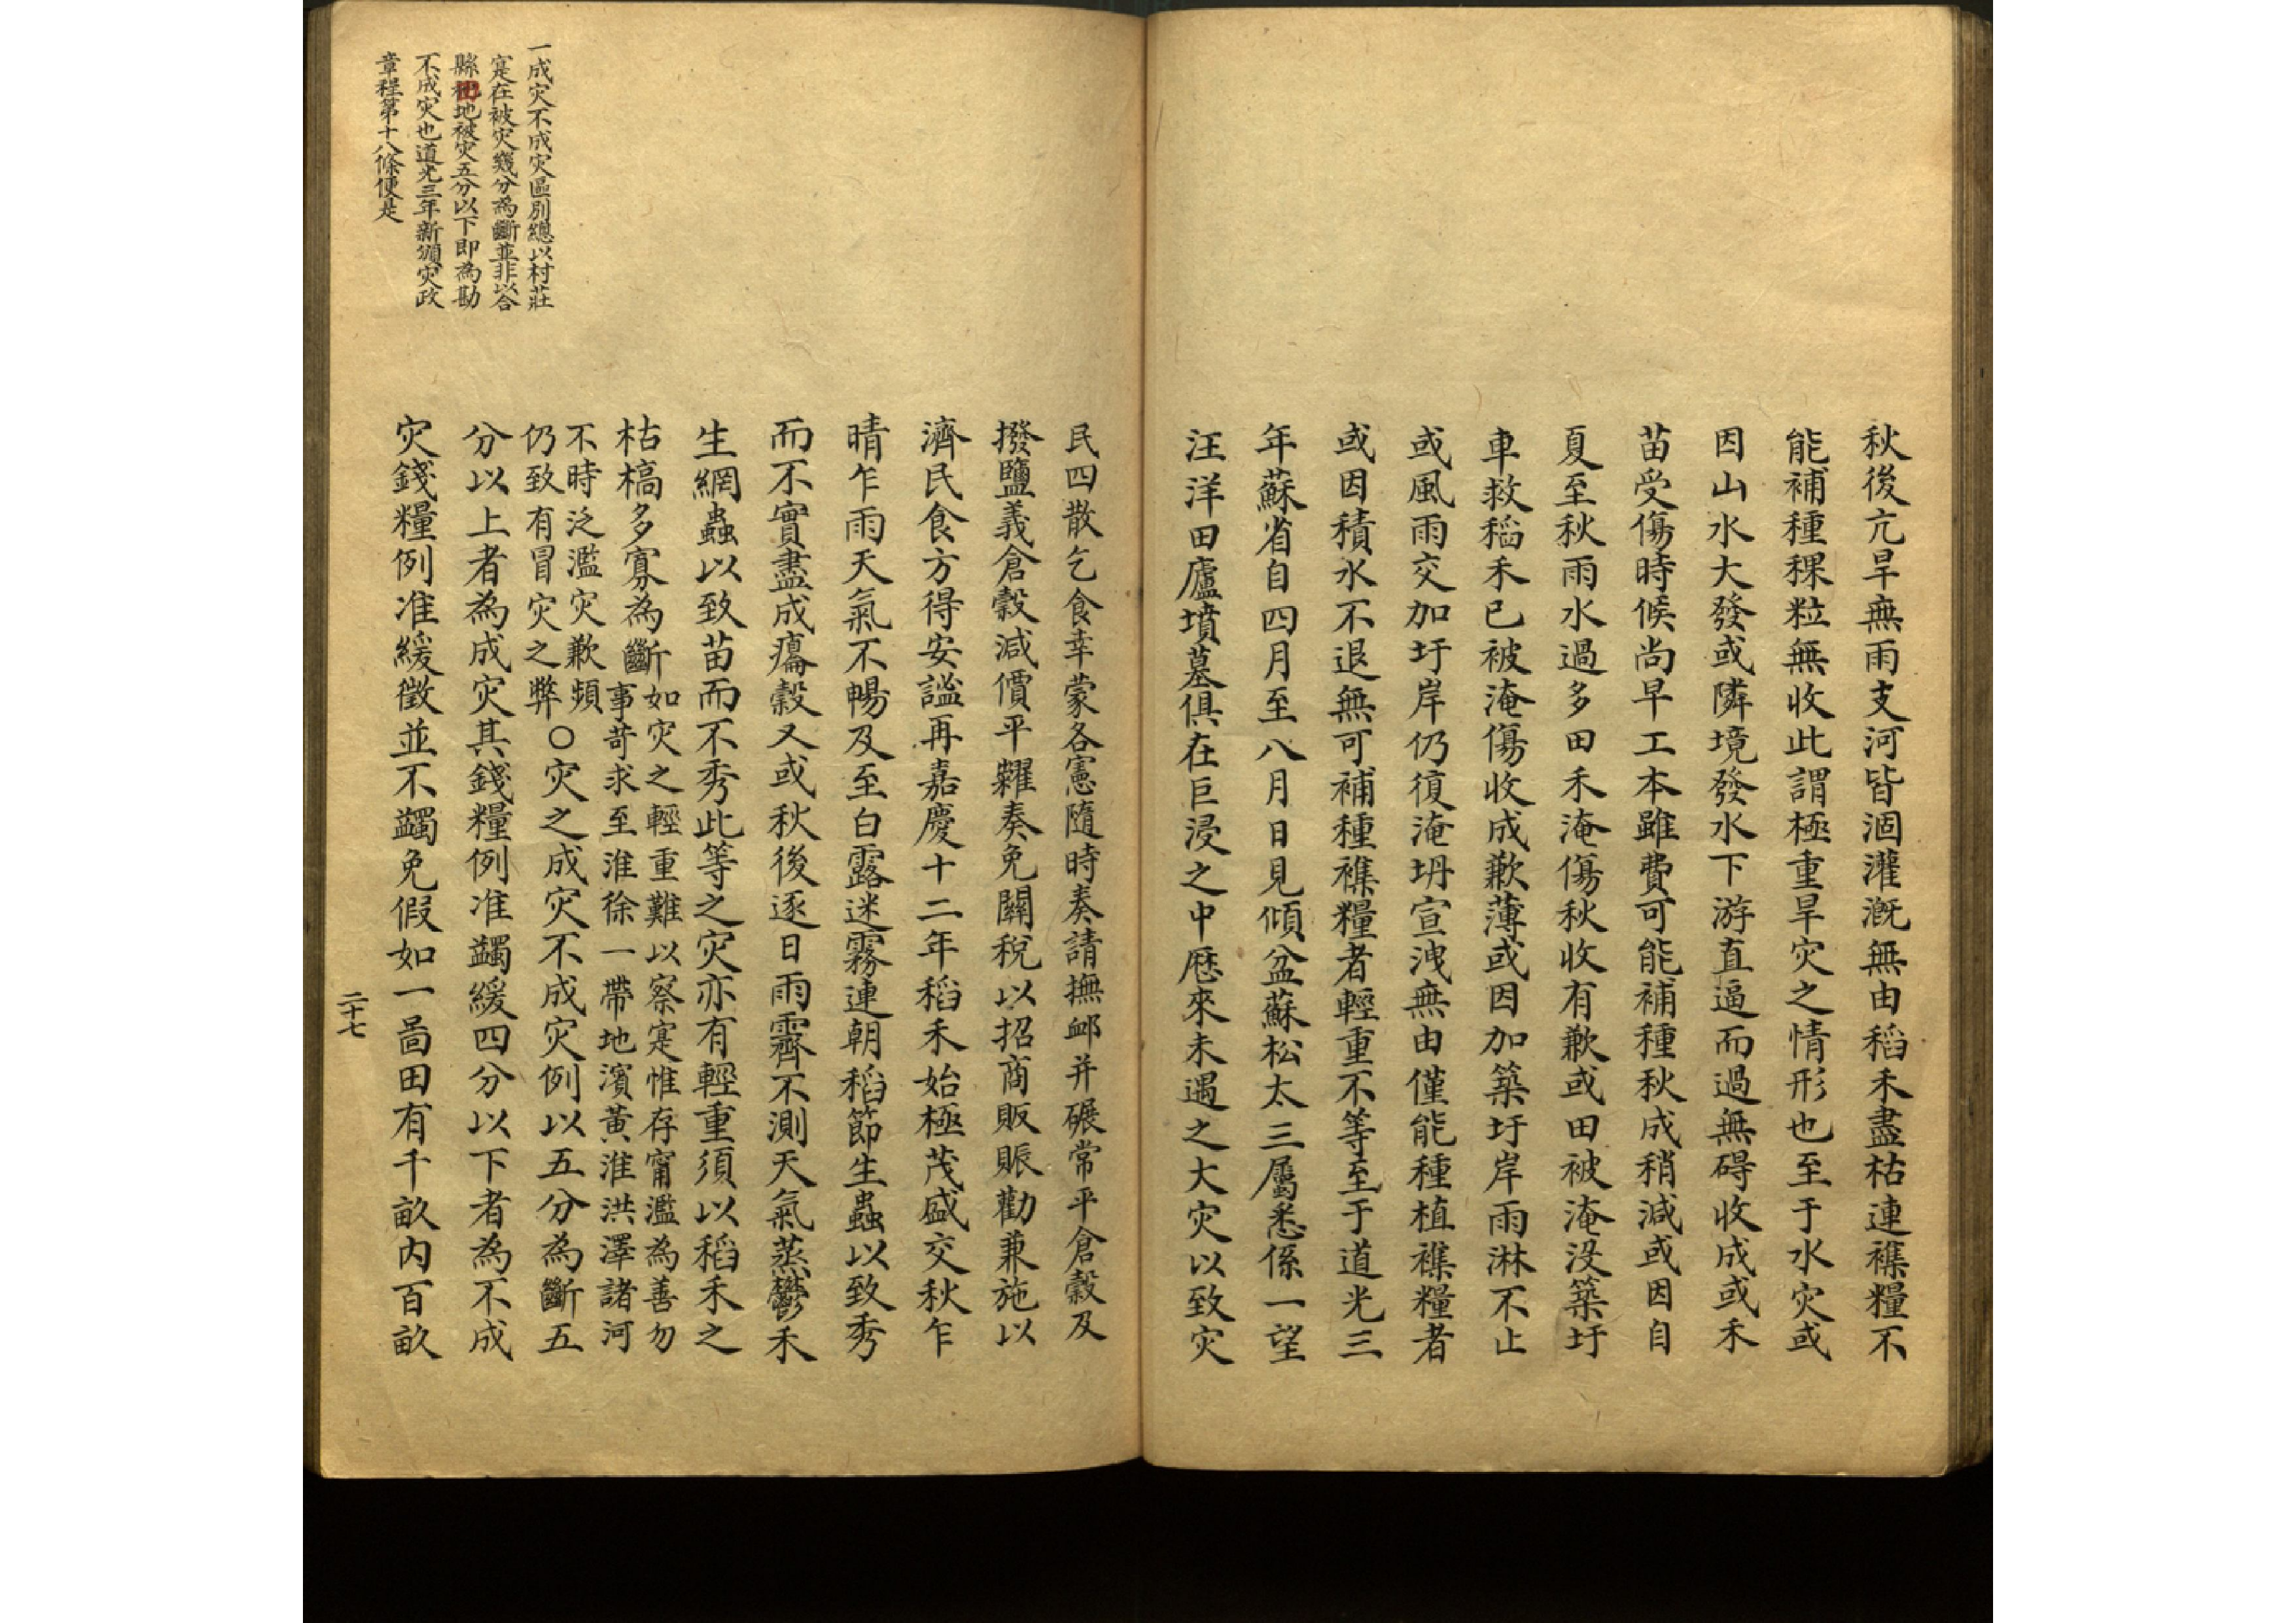 秋後亢旱無雨支河皆涸灌溉無由稻禾盡枯連襍糧不
能補種稞粒無收此謂極重旱灾之情形也至于水灾或
因山水大發或隣境發水下游直逼而過無碍收成或禾
苗受傷時候尚早工本雖費可能補種秋成稍減或因自
夏至秋雨水過多田禾淹傷秋收有歉或田被淹没築圩
車救稻禾已被淹傷收成歉薄或因加築圩岸雨淋不止
或風雨交加圩岸仍復淹坍宣洩無由僅能種植襍糧者
或因積水不退無可補種襍糧者輕重不等至于道光三
年蘇省自四月至八月日見傾盆蘇松太三屬悉係一望
汪洋田廬墳墓俱在巨浸之中厯來未遇之大灾以致灾
民四散乞食幸蒙各憲隨時奏請撫䘏并碾常平倉穀及
撥鹽義倉穀減價平糶奏免關稅以招商販賑勸兼施以
濟民食方得安謐再嘉慶十二年稻禾始極茂盛交秋乍
晴乍雨天氣不暢及至白露迷霧連朝稻節生蟲以致秀
而不實盡成癟穀又或秋後逐日雨霽不測天氣蒸鬱禾
生綱蟲以致苗而不秀此等之灾亦有輕重須以稻禾之
枯槁多寡為斷
如灾之輕重難以察寔惟存甯濫為善勿
事苛求至淮徐一帶地濱黃淮洪澤諸河
不時泛濫灾歉頻
仍致有冒灾之弊
○灾之成灾不成灾例以五分為斷五
分以上者為成灾其錢糧例准蠲緩四分以下者為不成
灾錢糧例准緩徵並不蠲免假如一啚田有千畝内百畝
一成灾不成灾區別總以村莊
寔在被灾幾分為斷並非以合
縣田地被灾五分以下即為勘
不成灾也道光三年新頒灾政
章程第十八條便是
二十七